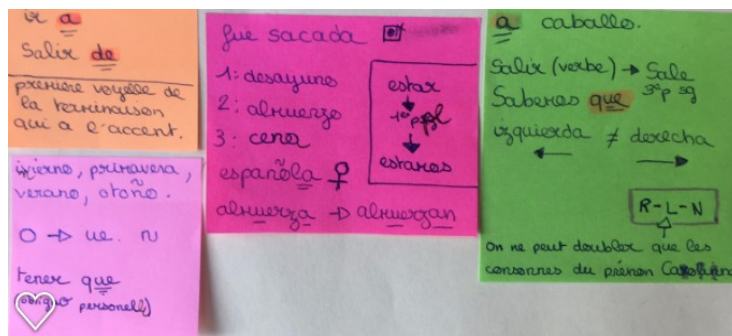 ir a
Salir de
première voyelle de
la terminaison
qui a l'accent.
invierno, primavera,
verano, otoño.
O → ue. ñ
tener que
personell)
fue sacada
1: desayuno
2: almuerzo
3: cena
española ♀
almuerza → almuerzan
estar
↓
1e p pl
↓
estamos
a caballo.
Salir (verbe) → Sale
3e p sg
Sabemos que
izquierda ≠ derecha
← →
R-L-N
on ne peut doubler que les
consonnes du prénom